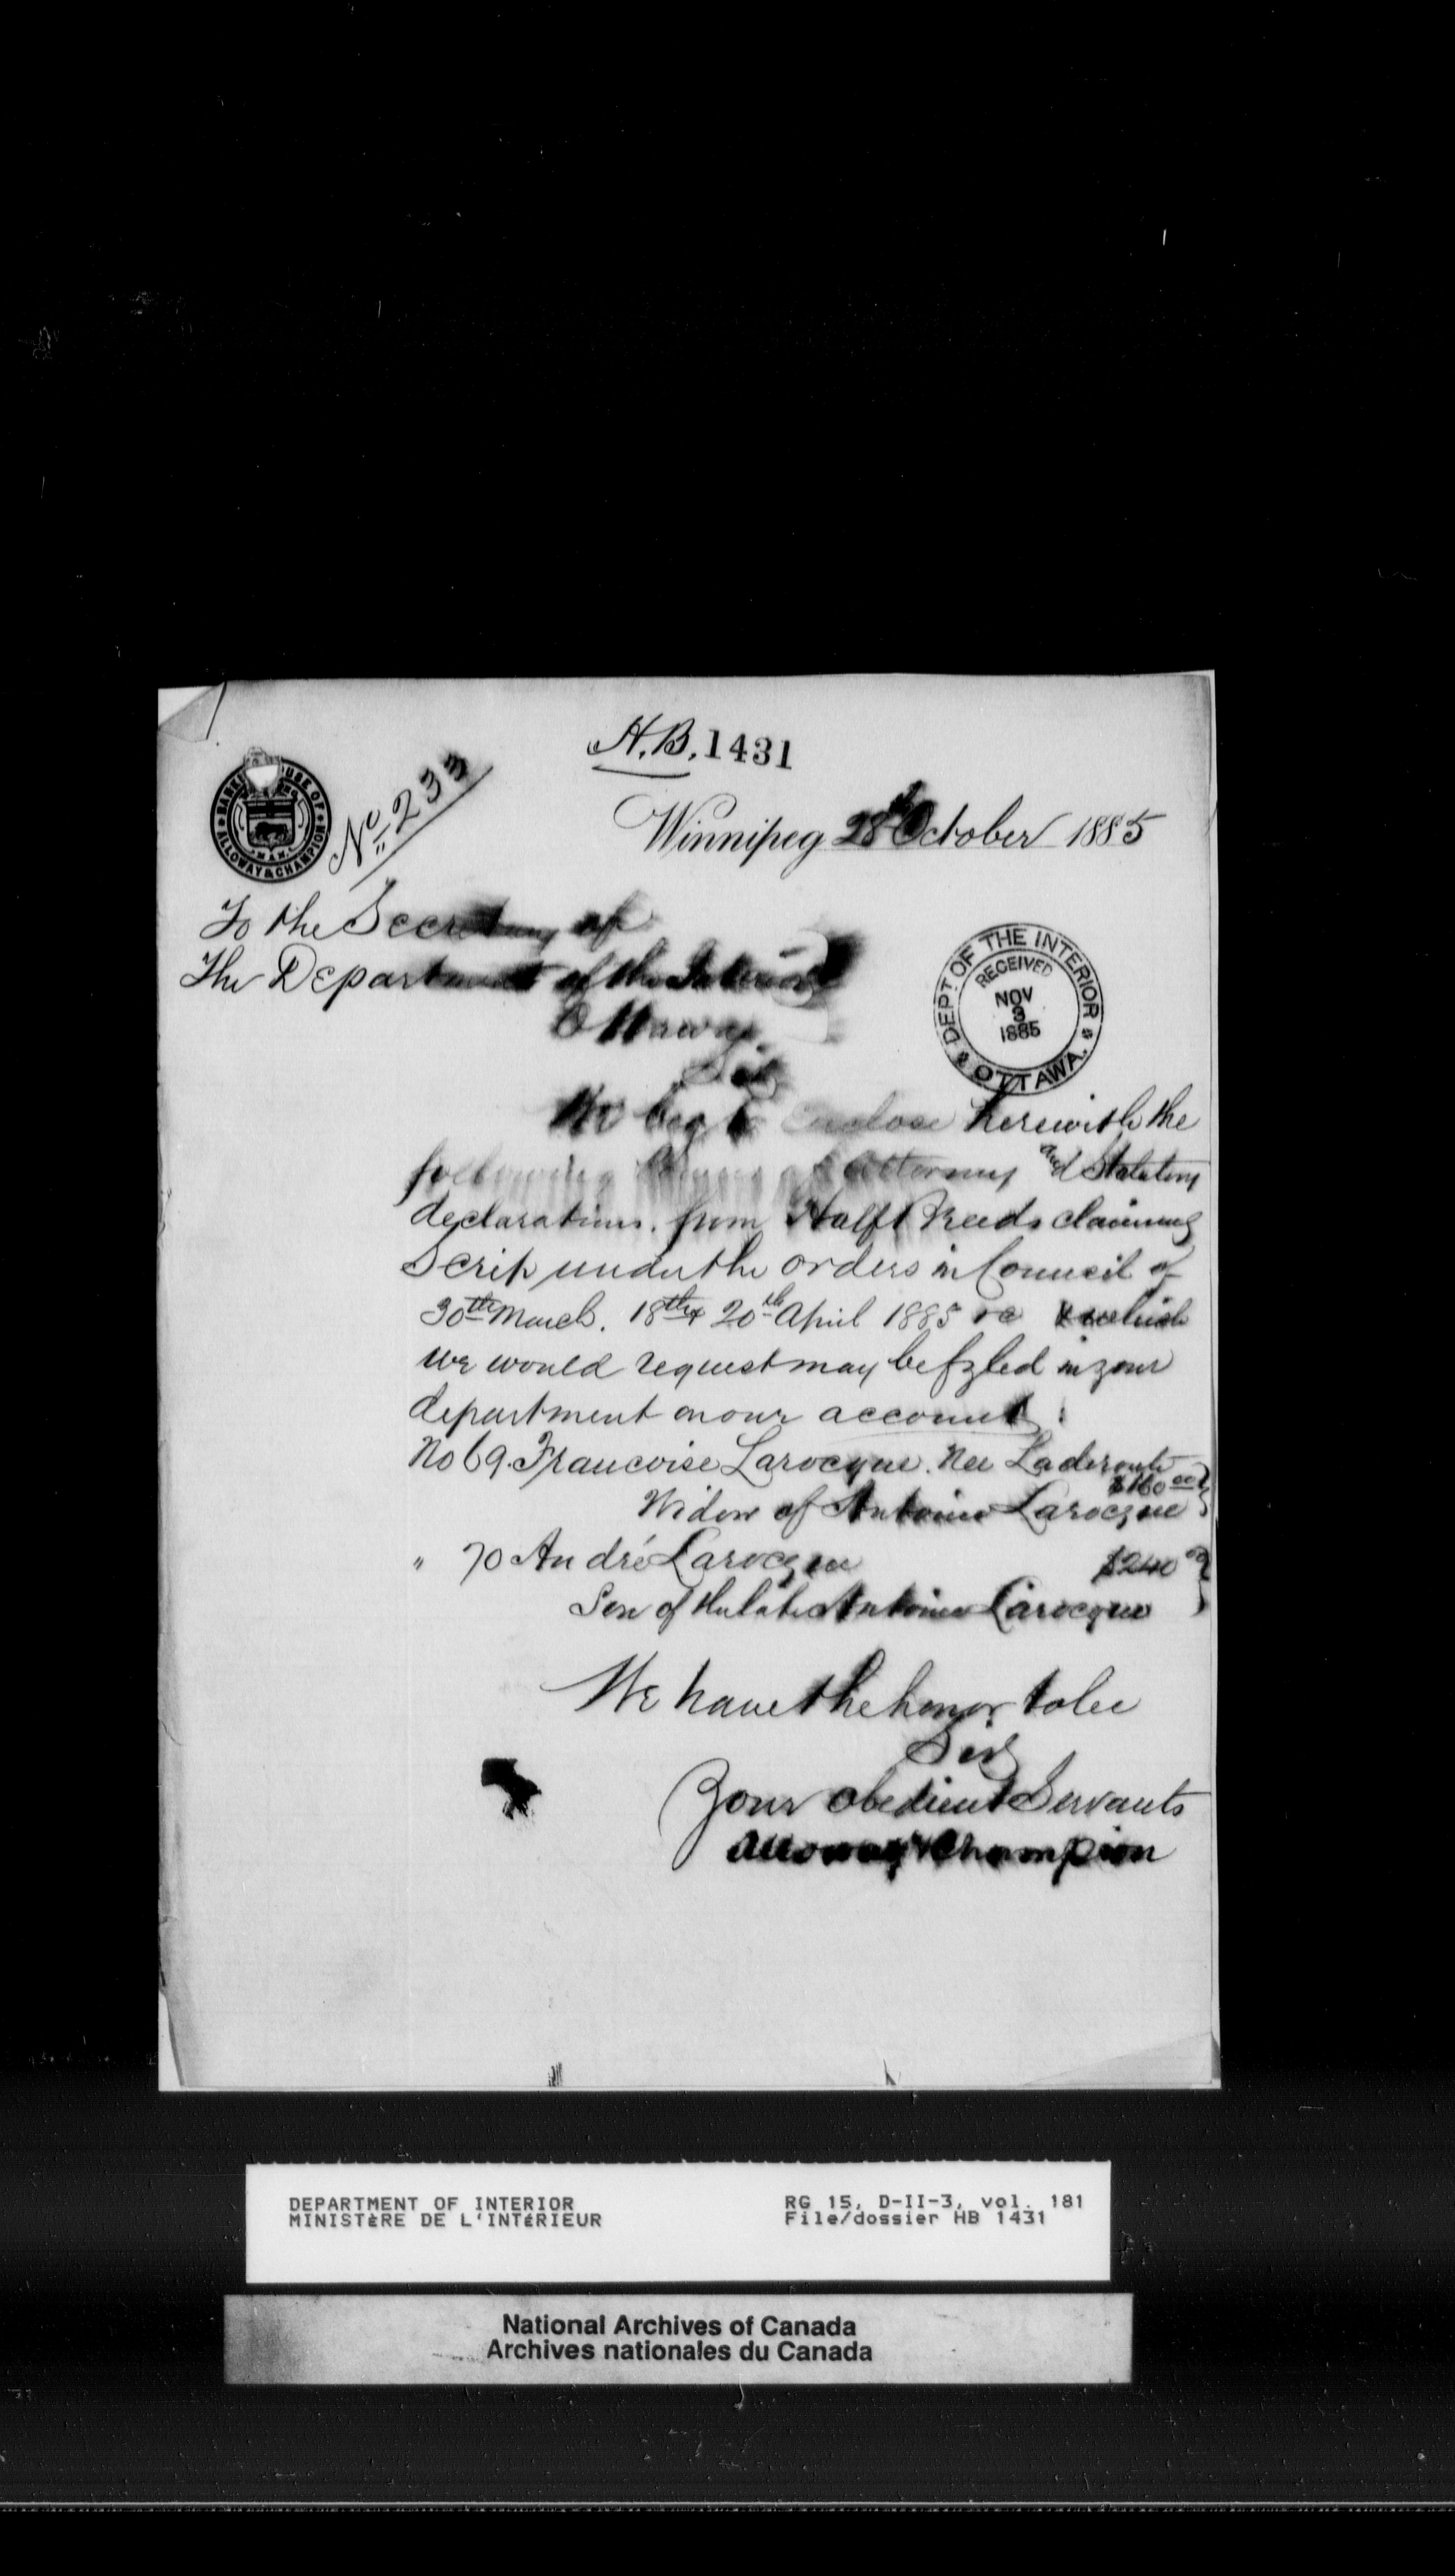 H.B. 1431
BANKING HOUSE OF
ALLOWAY & CHAMPION
MAN.
No 233
Winnipeg 28th October 1885
To the Secretary of
The Department of the Interior
Ottawa
Sir
DEPT. OF THE INTERIOR
RECEIVED
NOV
3
1885
OTTAWA.
We beg to enclose herewith the
following Powers of Attorney and Statutory
declarations. from Half Breeds claiming
Scrip under the orders in Council of
30th March. 18th & 20th April 1885 & which
we would request may be fyled in your
department on our account:
No 69. Francoise Larocque. Nee Laderoute
$160 00
Widow of Antoine Larocque
" 70 André Larocque $240 00
Son of the late Antoine Larocque
We have the honor to be
Sir
Your obedient Servants
Alloway & Champion
DEPARTMENT OF INTERIOR
MINISTÈRE DE L'INTÉRIEUR
RG 15, D-II-3, vol. 181
File/dossier HB 1431
National Archives of Canada
Archives nationales du Canada